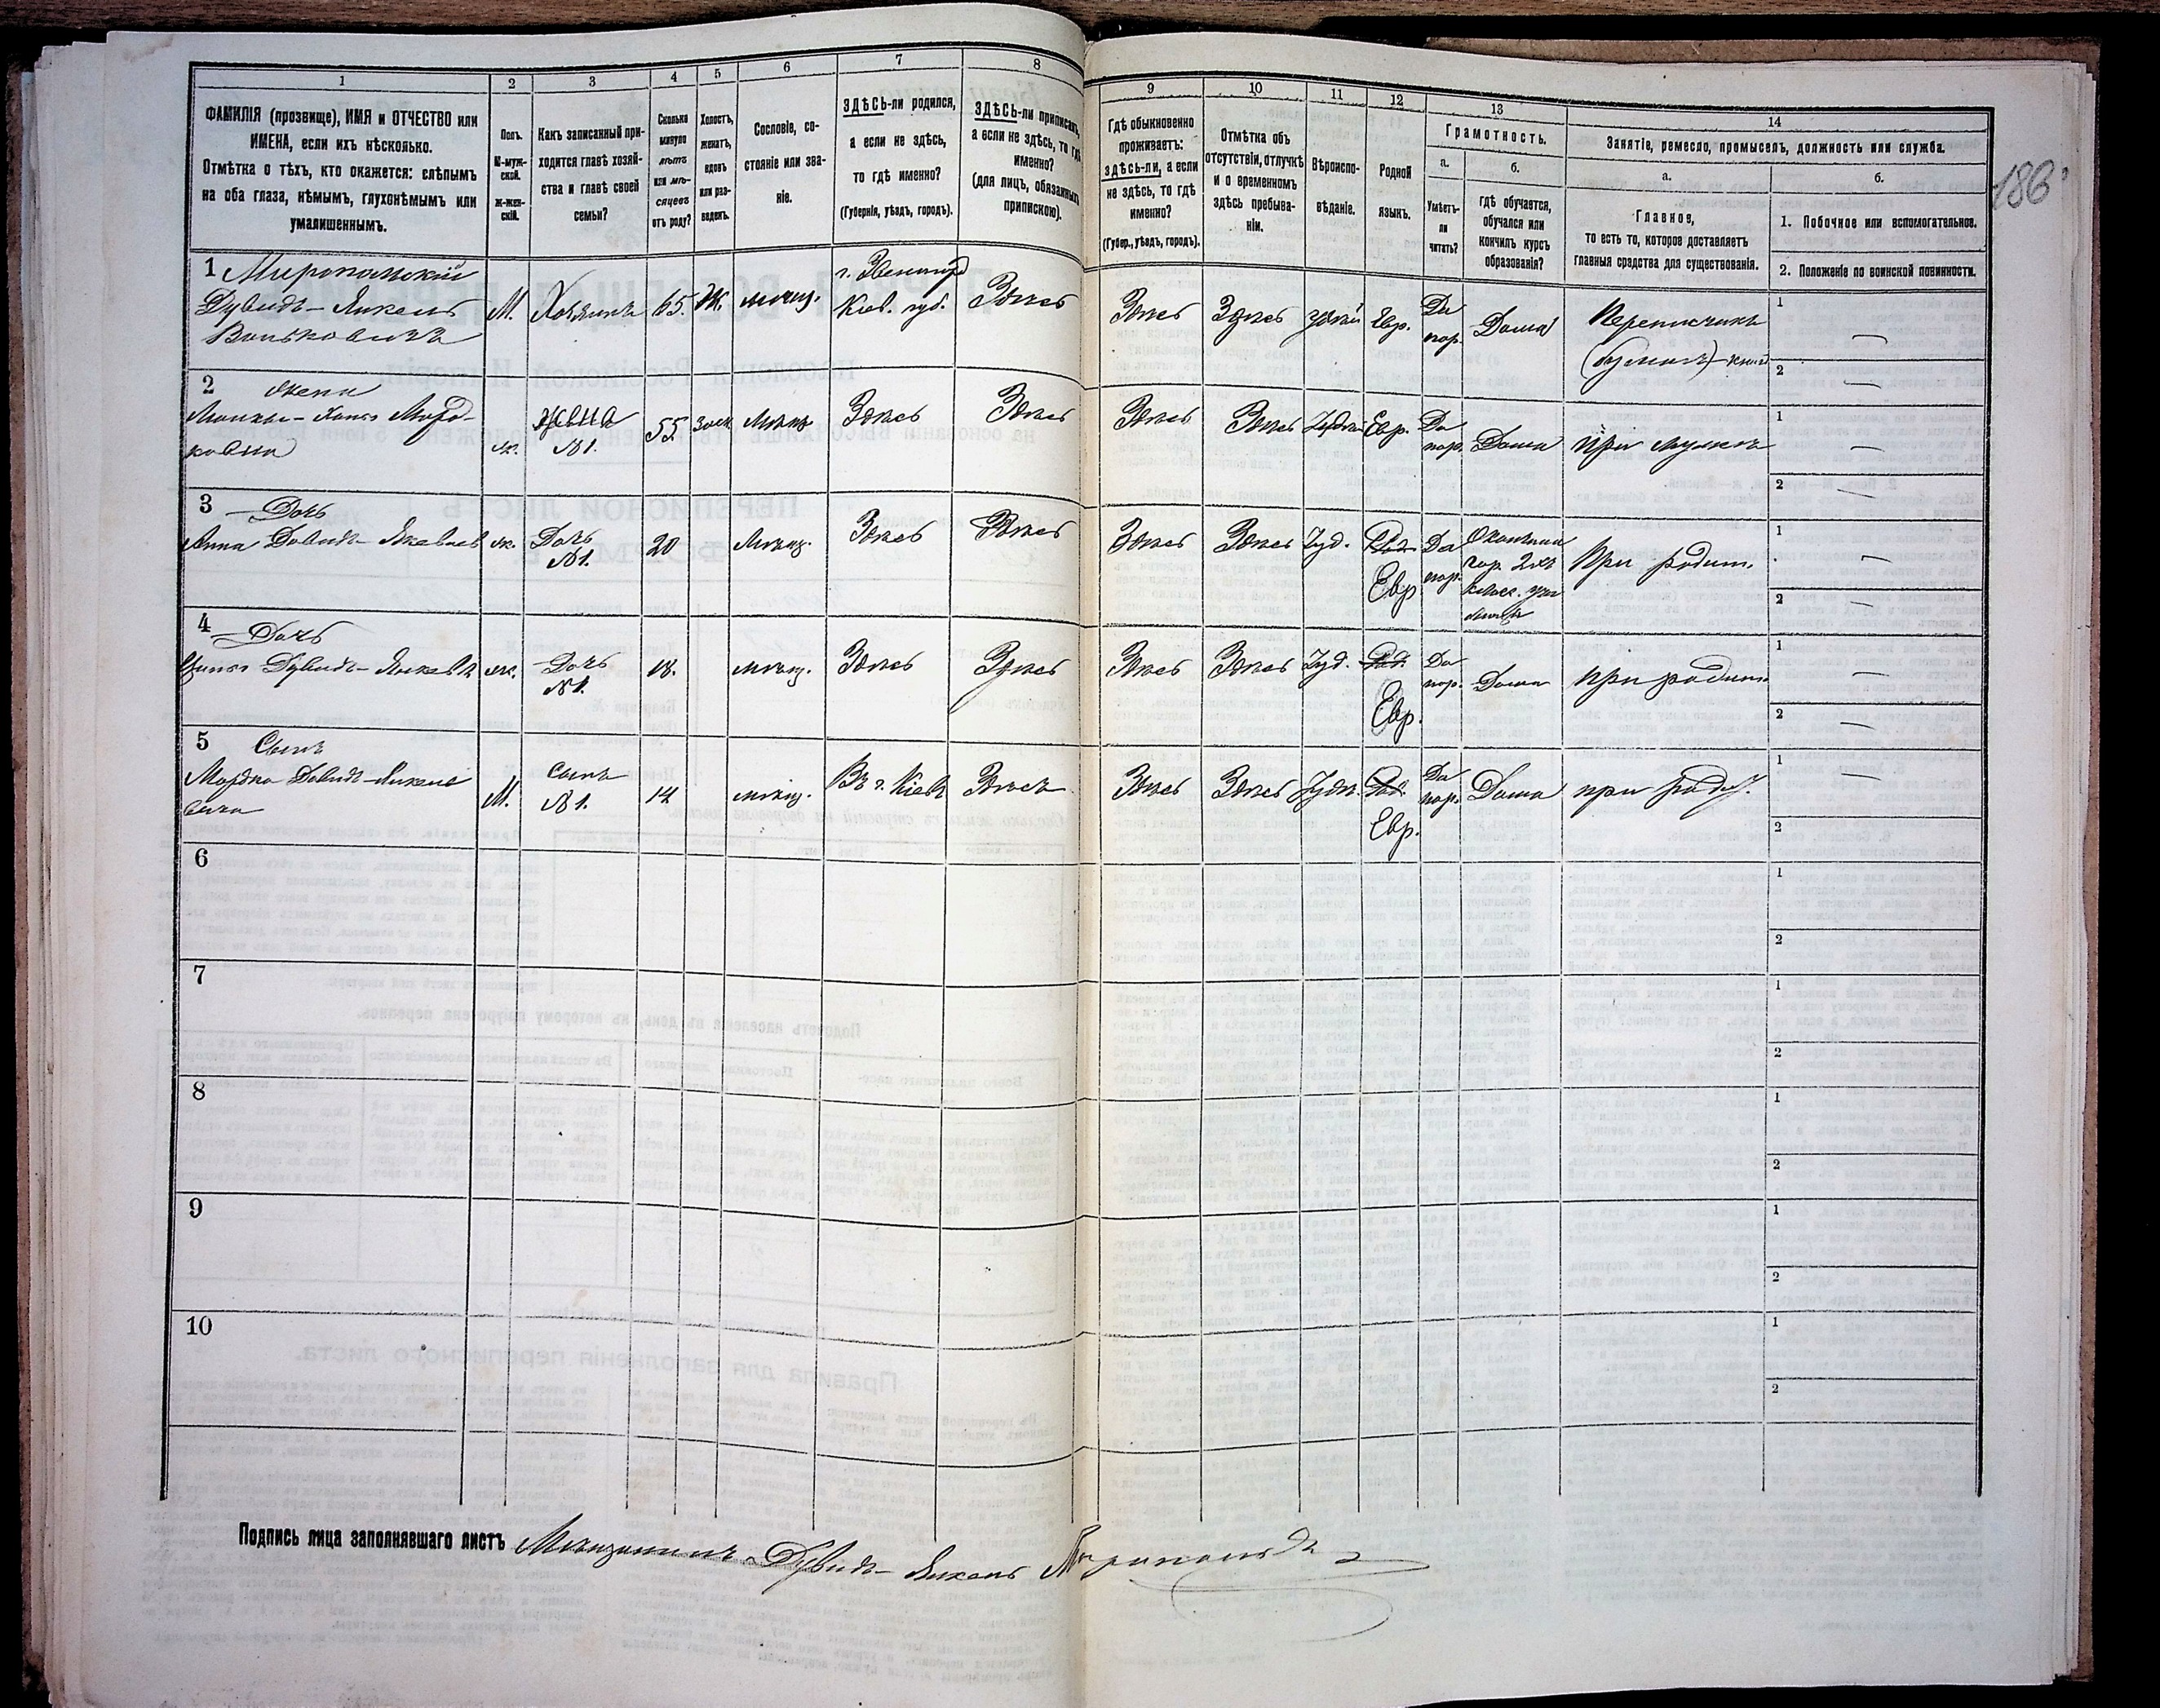 1
2
3
4
5
6
7
8
ФАМИЛІЯ (прозвище), ИМЯ и ОТЧЕСТВО или
ИМЕНА, если ихъ нѣсколько.
Отмѣтка о тѣхъ, кто окажется: слѣпымъ
на оба глаза, нѣмымъ, глухонѣмымъ или
умалишеннымъ.
Полъ.
М-муж-
ской.
ж-жен-
скій.
Какъ записанный при-
ходится главѣ хозяй-
ства и главѣ своей
семьи?
Сколько
минуло
лѣтъ
или мѣ-
сяцевъ
отъ роду?
Холостъ,
женатъ,
вдовъ
или раз-
веденъ.
Сословіе, со-
стояніе или зва-
ніе.
ЗДѢСЬ-ли родился,
а если не здѣсь,
то гдѣ именно?
(Губернія, уѣздъ, городъ).
ЗДѢСЬ-ли приписанъ,
а если не здѣсь, то гдѣ
именно?
(для лицъ, обязанныхъ
припискою).
9
10
11
12
13
14
Гдѣ обыкновенно
проживаетъ:
здѣсь-ли, а если
не здѣсь, то гдѣ
именно?
(Губер., уѣздъ, городъ).
Отмѣтка объ
отсутствіи, отлучкѣ
и о временномъ
здѣсь пребыва-
ніи.
Вѣроиспо-
вѣданіе.
Родной
языкъ.
Грамотность.
а.
Умѣетъ-
ли
читать?
б.
гдѣ обучается,
обучался или
кончилъ курсъ
образованія?
Занятіе, ремесло, промыселъ, должность или служба.
а.
Главное,
то есть то, которое доставляетъ
главныя средства для существованія.
б.
1. Побочное или вспомогательное.
2. Положеніе по воинской повинности.
186
1 Миропольскій
Дувидъ-Янкель
Вольковичъ
М.
Хозяинъ
65.
Ж.
мѣщ.
г. Звенигор
Кіев. губ.
Здѣсь
Здѣсь
Здѣсь
іудей
Евр.
Да
Дома
Переписчикъ
(бумагъ)
1
—
2
—
2 Жена
ковна
ж.
жена
№ 1.
55
Здѣсь
Здѣсь
Здѣсь
Здѣсь
Евр.
Да
Дома
при мужѣ
1
—
2
—
3 Дочь
Анна Довидъ-
ж.
Дочь
№ 1.
20
мѣщ.
Здѣсь
Здѣсь
Здѣсь
Здѣсь
Іуд.
Евр
Да
При родит.
1
—
2
—
4 Дочь
ж.
Дочь
№ 1.
18.
мѣщ.
Здѣсь
Здѣсь
Здѣсь
Здѣсь
Іуд.
Евр.
Да
Дома
при родит
1
—
2
—
5 Сынъ
Мордко Довидъ-Янкеле
вичъ
М.
сынъ
№ 1.
14
мѣщ.
Въ г. Кіевѣ
Здѣсь
Здѣсь
Здѣсь
Евр.
Да
Дома
при род.
1
—
2
6
1
2
7
1
2
8
1
2
9
1
2
10
1
2
Подпись лица заполнявшаго листъ Мѣщанинъ Дувидъ-Янкель